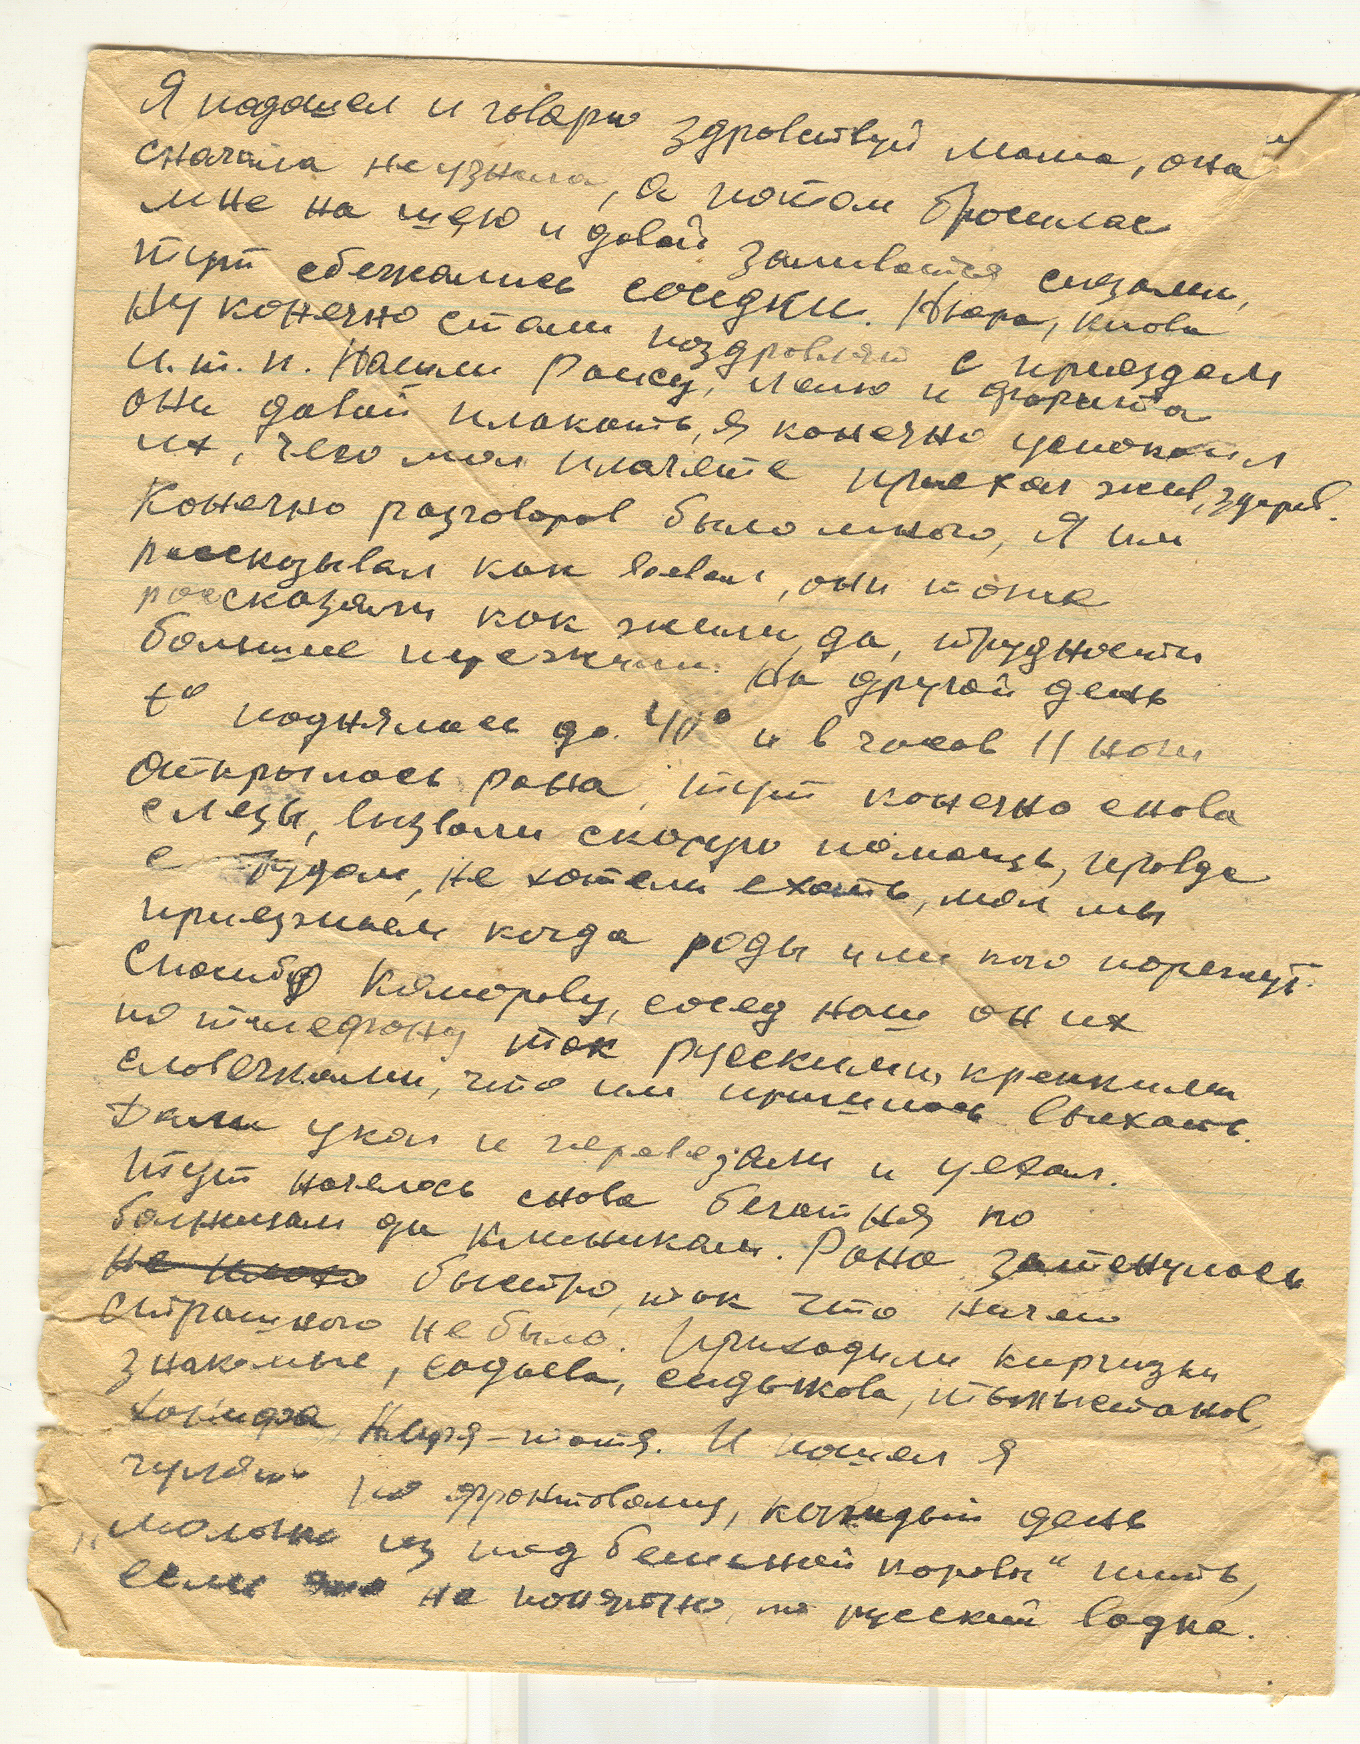 Я подошел и говорю здровствуй мама, она
сначала не узнала, а потом бросилас
мне на шею и довай заливатся слезами,
тут сбежались соседки. Нюра, Клова
ну конечно стали поздровлят с приездом
и.т.п. Нашли Раису, Лёлю и Фарита
они довай плокать, я конечно успокоил
их, чего мол плачете приехал жив, здоров.
Конечно разговоров было много, Я им
рассказывал как воевал, они тоже
россказали как жили, да, трудности
большие пережили. На другой день
t° поднялась до 40° и в часов 11 ночи
открылось рана, тут конечно снова
слезы, вызвали скорую помощь, провда
с трудом, не хотели ехать, мол мы
приезжаем когда роды или кого порежут.
Спосибо Комарову, сосед наш он их
по телефону так русскими, крепкими
словечками, что им пришлось выехать.
Дали укол и перевезали и уехал.
Тут началось снова беготня по
больницам да клиникам. Рана затенулась
не плохо быстро, так что ничего
страшного не было. Приходили киргизки
знакомые, содыева, сыдыкова, тыныстанов,
Нюря-тотя. И пошел я
гулять по фронтовому, каждый день
"молоко из под бешеной коровы" пить,
если не понятно, по русский водка.